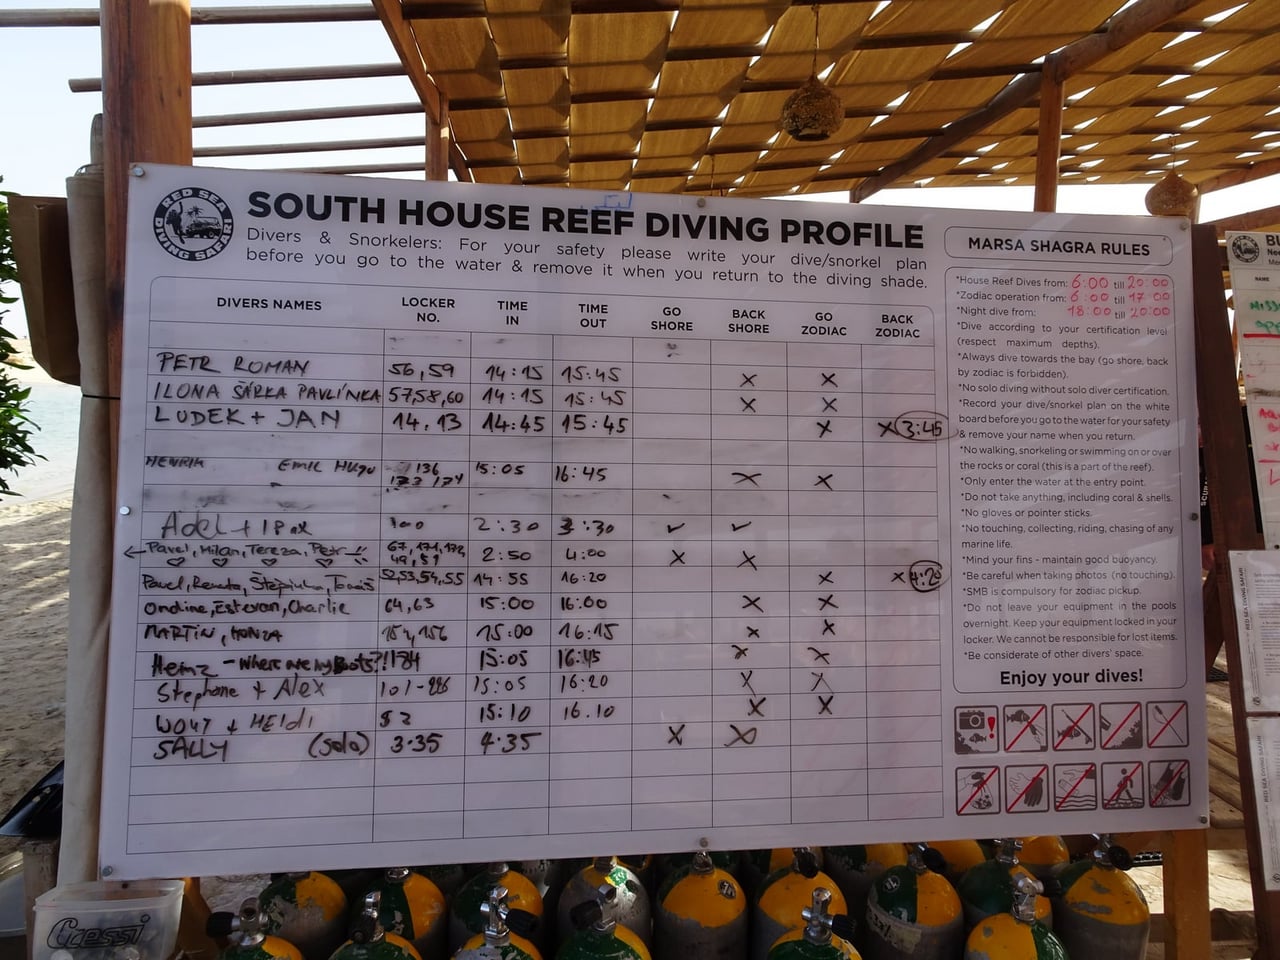 RED SEA
DIVING SAFARI
SOUTH HOUSE REEF DIVING PROFILE
Divers & Snorkelers: For your safety please write your dive/snorkel plan
before you go to the water & remove it when you return to the diving shade.
DIVERS NAMES LOCKER NO. TIME IN TIME OUT GO SHORE BACK SHORE GO ZODIAC BACK ZODIAC
PETR ROMAN 56,59 14:15 15:45 X X
ILONA ŠÁRKA PAVLÍNKA 57,58,60 14:15 15:45 X X
LUDEK + JAN 14,13 14:45 15:45 X X 3:45
HENRIK EMIL HUGO 136 173 174 15:05 16:45 X X
Adel + 100 2:30 3:30 ✓ ✓
Pavel, Milan, Tereza, Petr 67, 171, 172, 49, 51 2:50 4:00 X X
Pavel, Renata, Štěpánka, Tomáš 52,53,54,55 14:55 16:20 X X 4:20
Ondine, Estevan, Charlie 64,63 15:00 16:00 X X
MARTIN, HONZA 154,156 15:00 16:15 X X
Heinz - where are my Boots?! 184 15:05 16:45 X X
Stephane + Alex 101- 15:05 16:20 X X
WOUT & HEIDI 15:10 16.10 X X
SALLY (solo) 3.35 4.35 X X
MARSA SHAGRA RULES
*House Reef Dives from: 6:00 till 20:00
*Zodiac operation from: 6:00 till 17:00
*Night dive from: 18:00 till 20:00
*Dive according to your certification level
(respect maximum depths).
*Always dive towards the bay (go shore, back
by zodiac is forbidden).
*No solo diving without solo diver certification.
*Record your dive/snorkel plan on the white
board before you go to the water for your safety
& remove your name when you return.
*No walking, snorkeling or swimming on or over
the rocks or coral (this is a part of the reef).
*Only enter the water at the entry point.
*Do not take anything, including coral & shells.
*No gloves or pointer sticks.
*No touching, collecting, riding, chasing of any
marine life.
*Mind your fins - maintain good buoyancy.
*Be careful when taking photos (no touching).
*SMB is compulsory for zodiac pickup.
*Do not leave your equipment in the pools
overnight. Keep your equipment locked in your
locker. We cannot be responsible for lost items.
*Be considerate of other divers' space.
Enjoy your dives!
NAME
RED SEA DIVING SAFARI
RED SEA DIVING SAFARI
Cressi